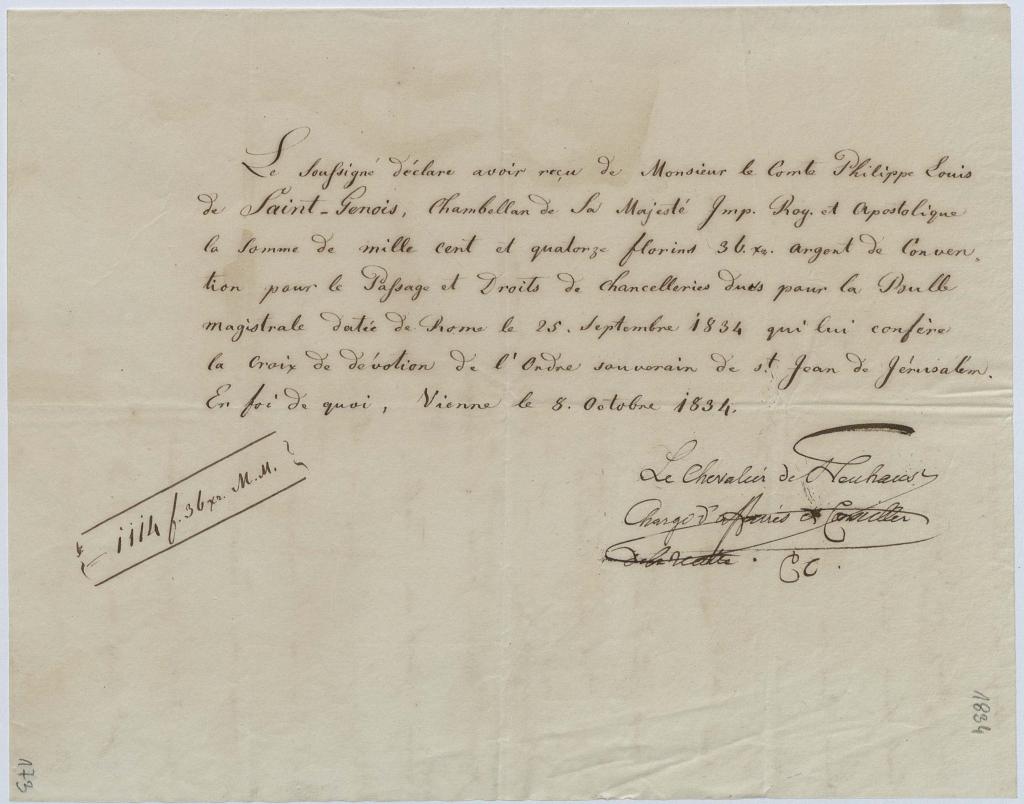 Le Soussigné déclare avoir reçu de Monsieur le Comte Philippe Louis
de Saint-Genois, Chambellan de Sa Majesté Imp. Roy. et Apostolique
la somme de mille cent et quatorze florins 36. xr. argent de Conven-
tion pour le Passage et Droits de Chancelleries dues pour la Bulle
magistrale datée de Rome le 25. Septembre 1834 qui lui confère
la Croix de dévotion de l'Ordre souverain de St. Jean de Jérusalem.
En foi de quoi, Vienne le 8. Octobre 1834.
Le Chevalier de Neuhaus
Chargé d'affaires et Conseiller
1114 f. 36 xr. M.M.
1834
173